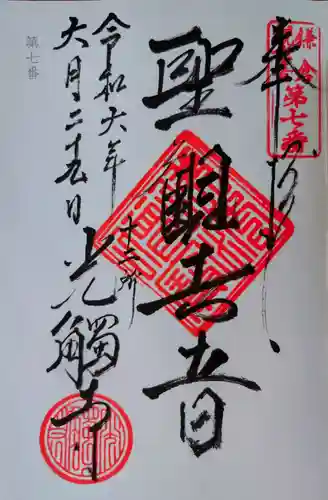 鎌倉
第七番
奉拝
聖觀世音
十二所
令和六年
六月二十九日
光觸寺
第七番